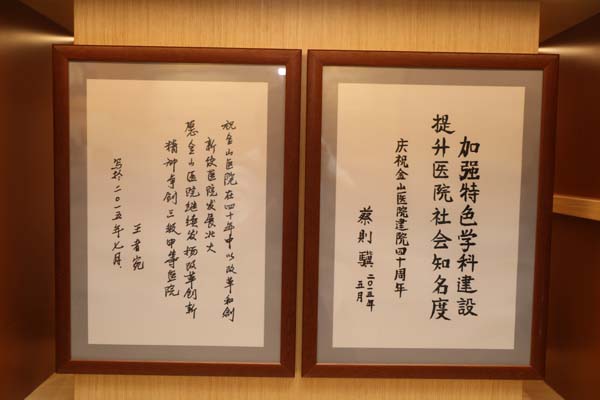 加强特色学科建設
提升医院社会知名度
庆祝金山医院建院四十周年
蔡則驥
二〇一五年
五月
祝金山医院在四十年中以改革和創
新使医院发展壮大
愿金山医院继续发扬改革创新
精神争创三级甲等医院
写於二〇一五年七月.